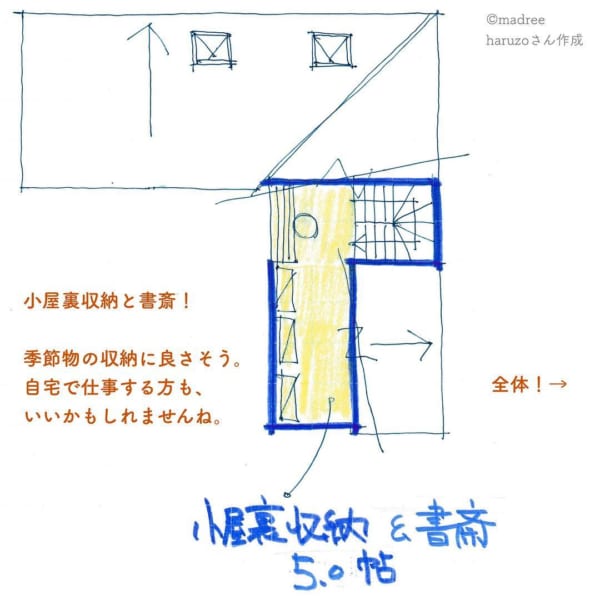 ©madree
haruzoさん作成
小屋裏収納と書斎！
季節物の収納に良さそう。
自宅で仕事する方も、
いいかもしれませんね。
全体！→
小屋裏収納 & 書斎
5.0 帖